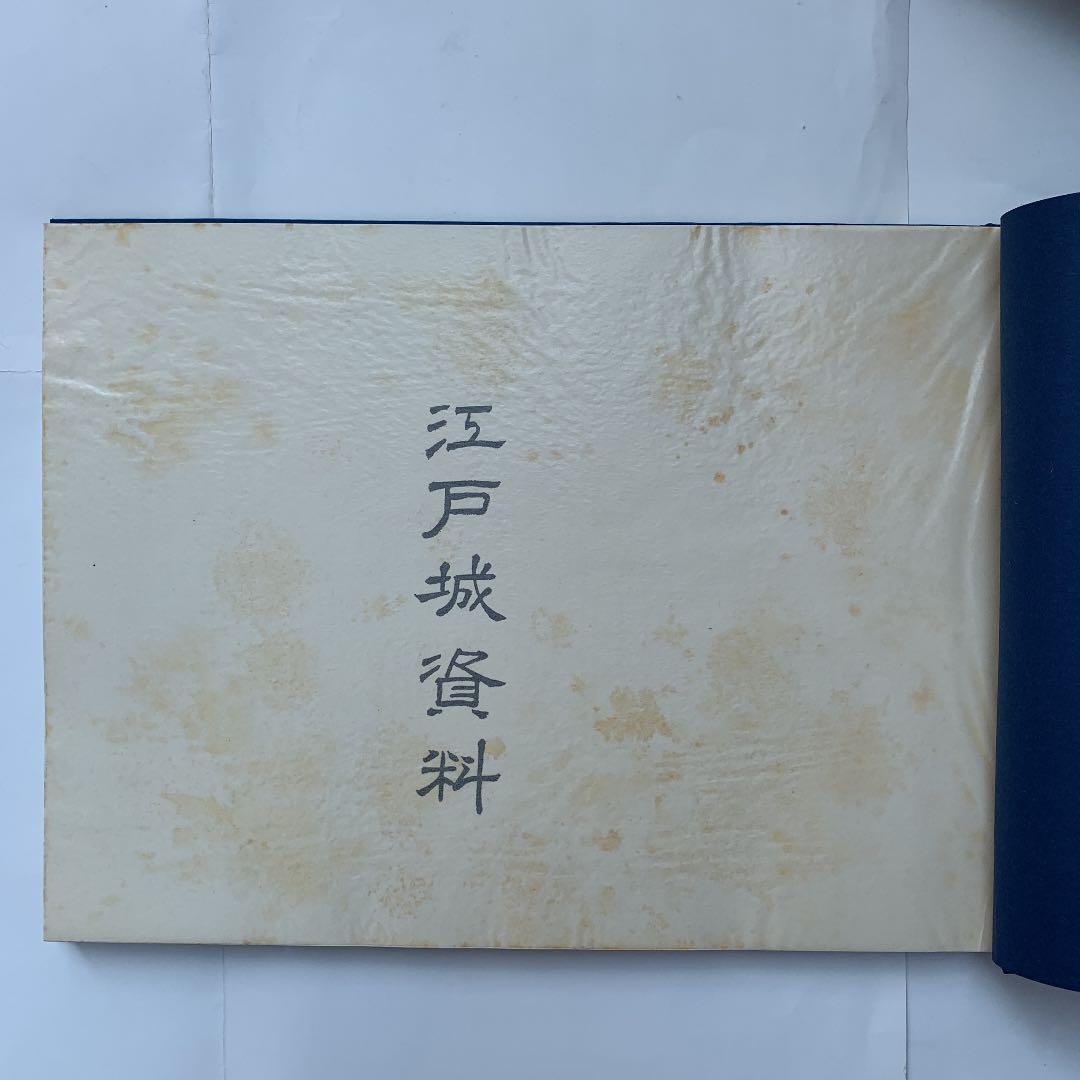 江戸城資料